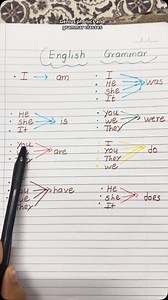 Daily phonics and
grammar classes
English Grammar
I am
I
He
She
It
was
He
She
It
is
You
we
They
were
You
are
I
You
They
we
do
You
we
They
have
He
She
It
does